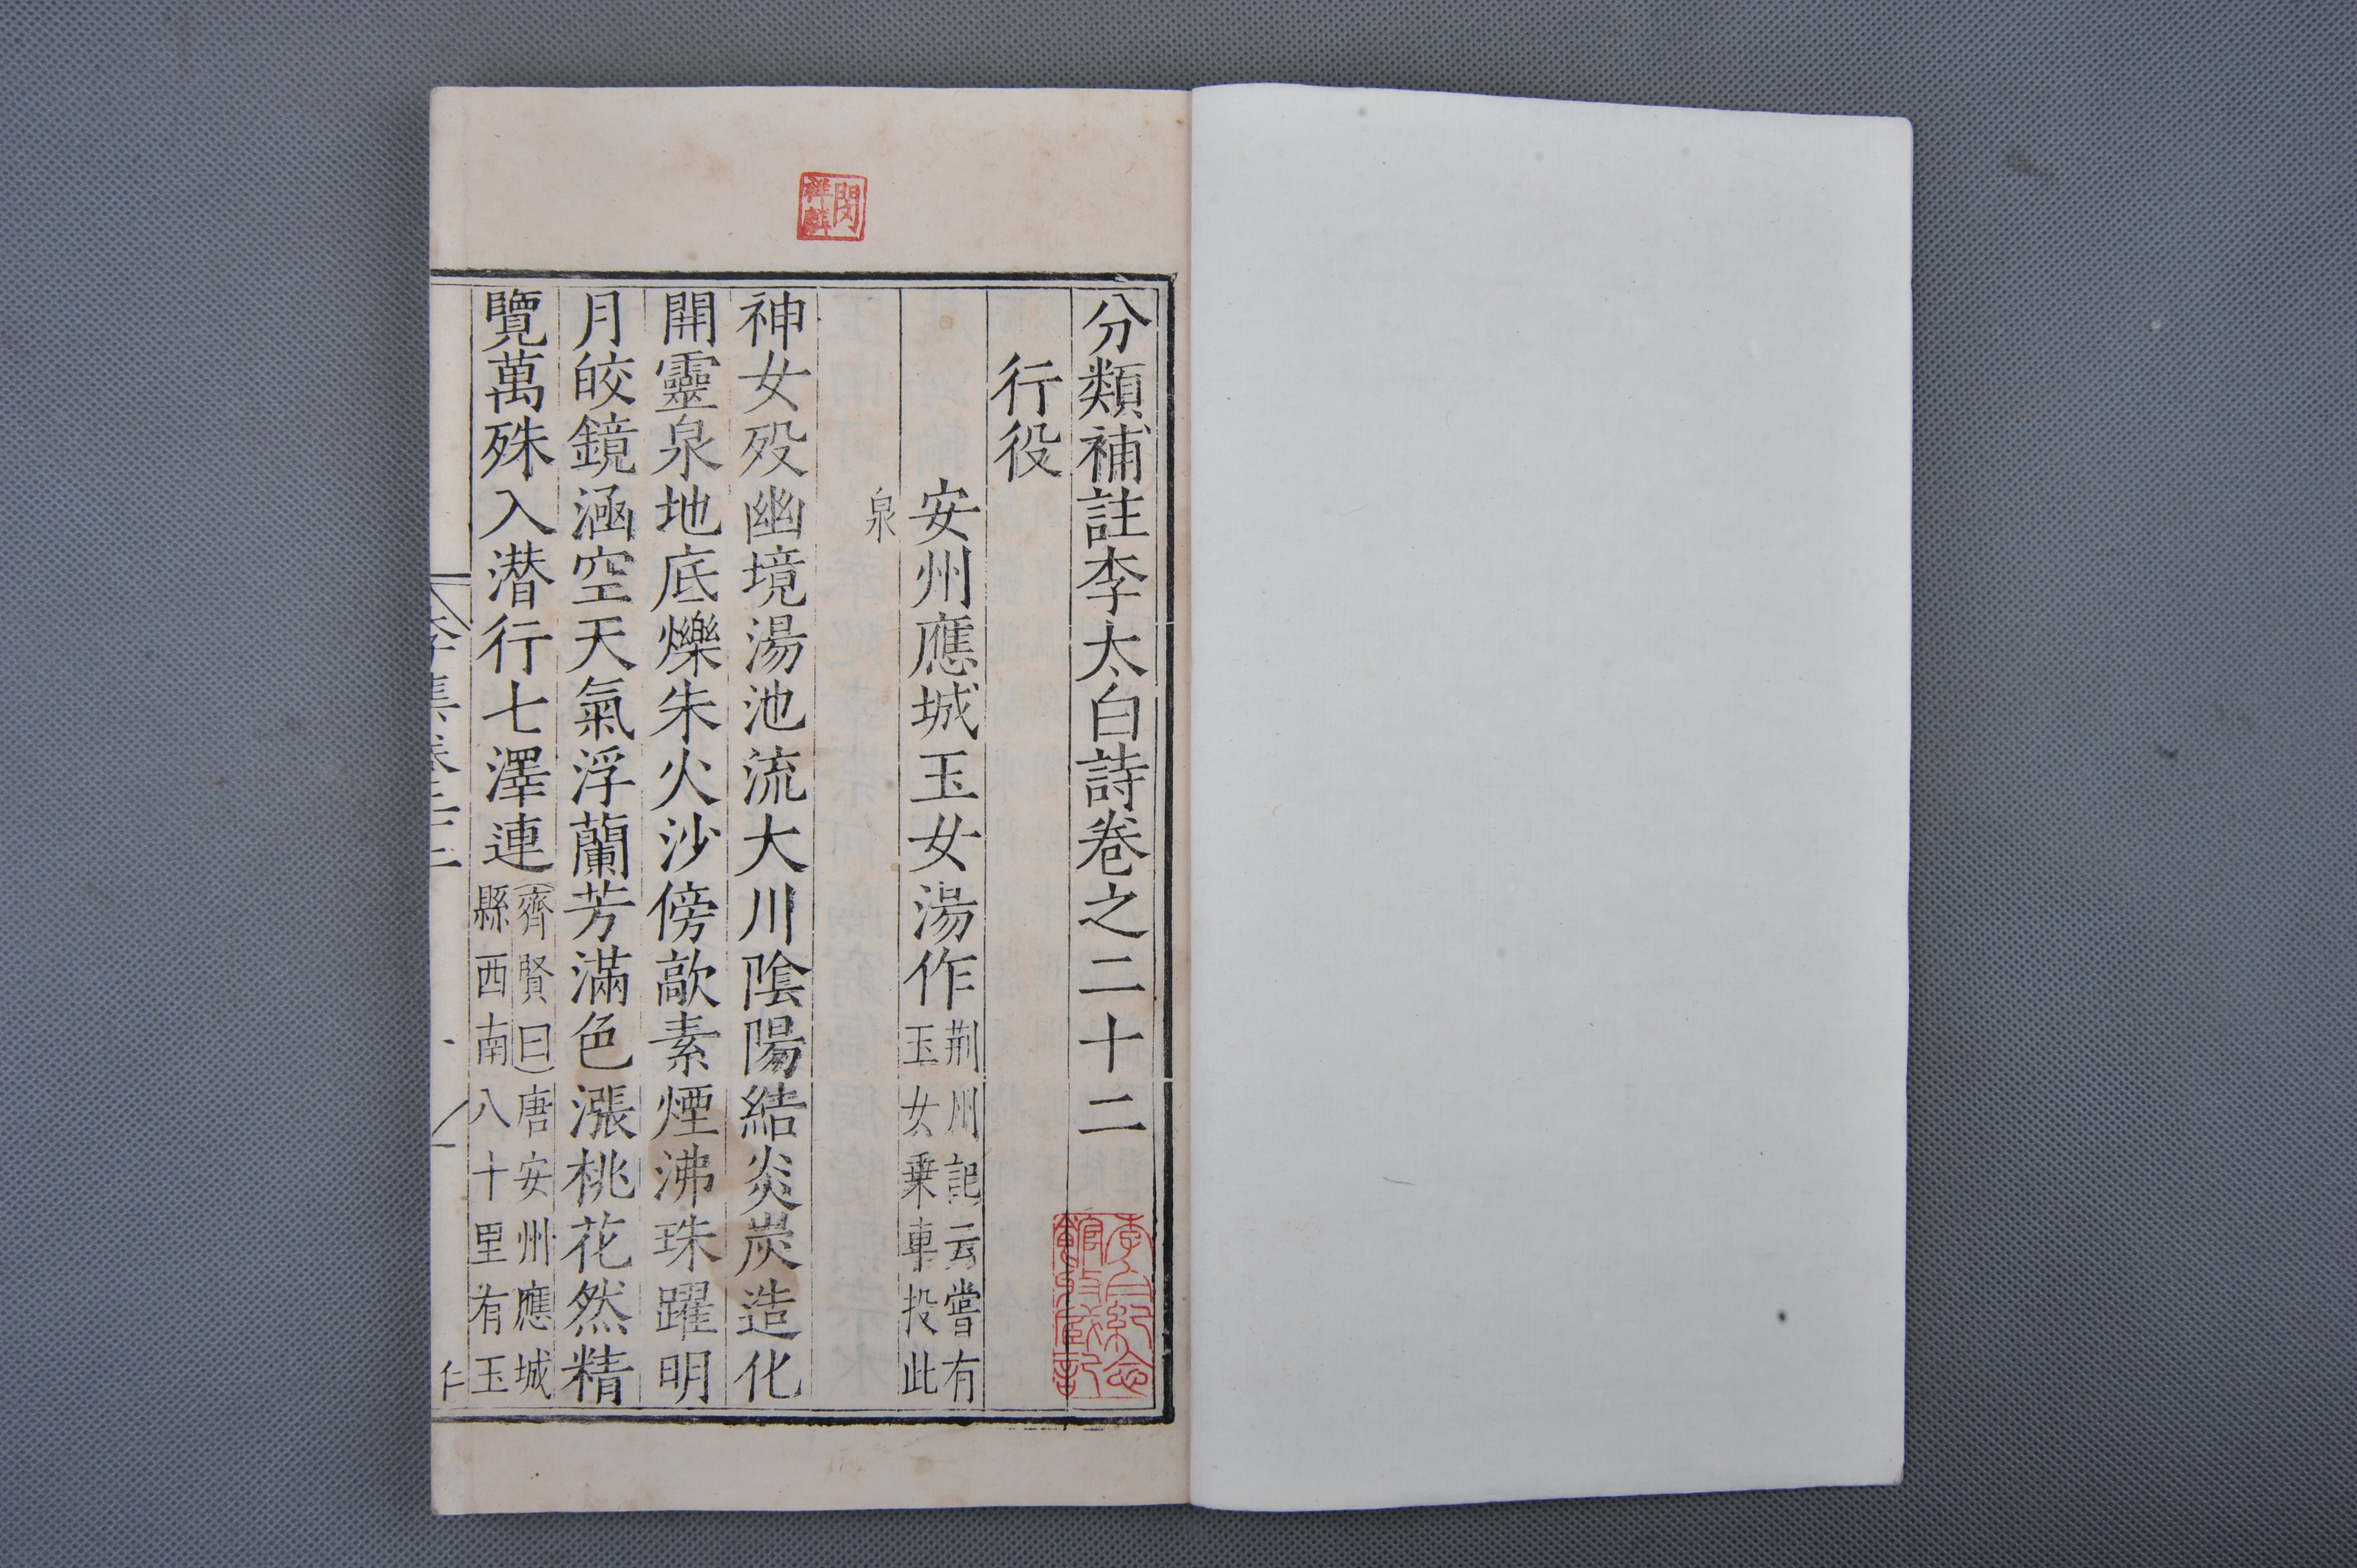 分類補註李太白詩卷之二十二
行役
安州應城玉女湯作荆州記云嘗有
玉女乗車投此
泉
神女殁幽境湯池流大川隂陽結炎炭造化
開靈泉地底爍朱火沙傍歊素煙沸珠躍明
月皎鏡涵空天氣浮蘭芳滿色漲桃花然精
覽萬殊入潜行七澤連齊賢曰唐安州應城
縣西南八十里有玉
李集卷二十二
仁
閔祥麟
李白紀念館收藏記